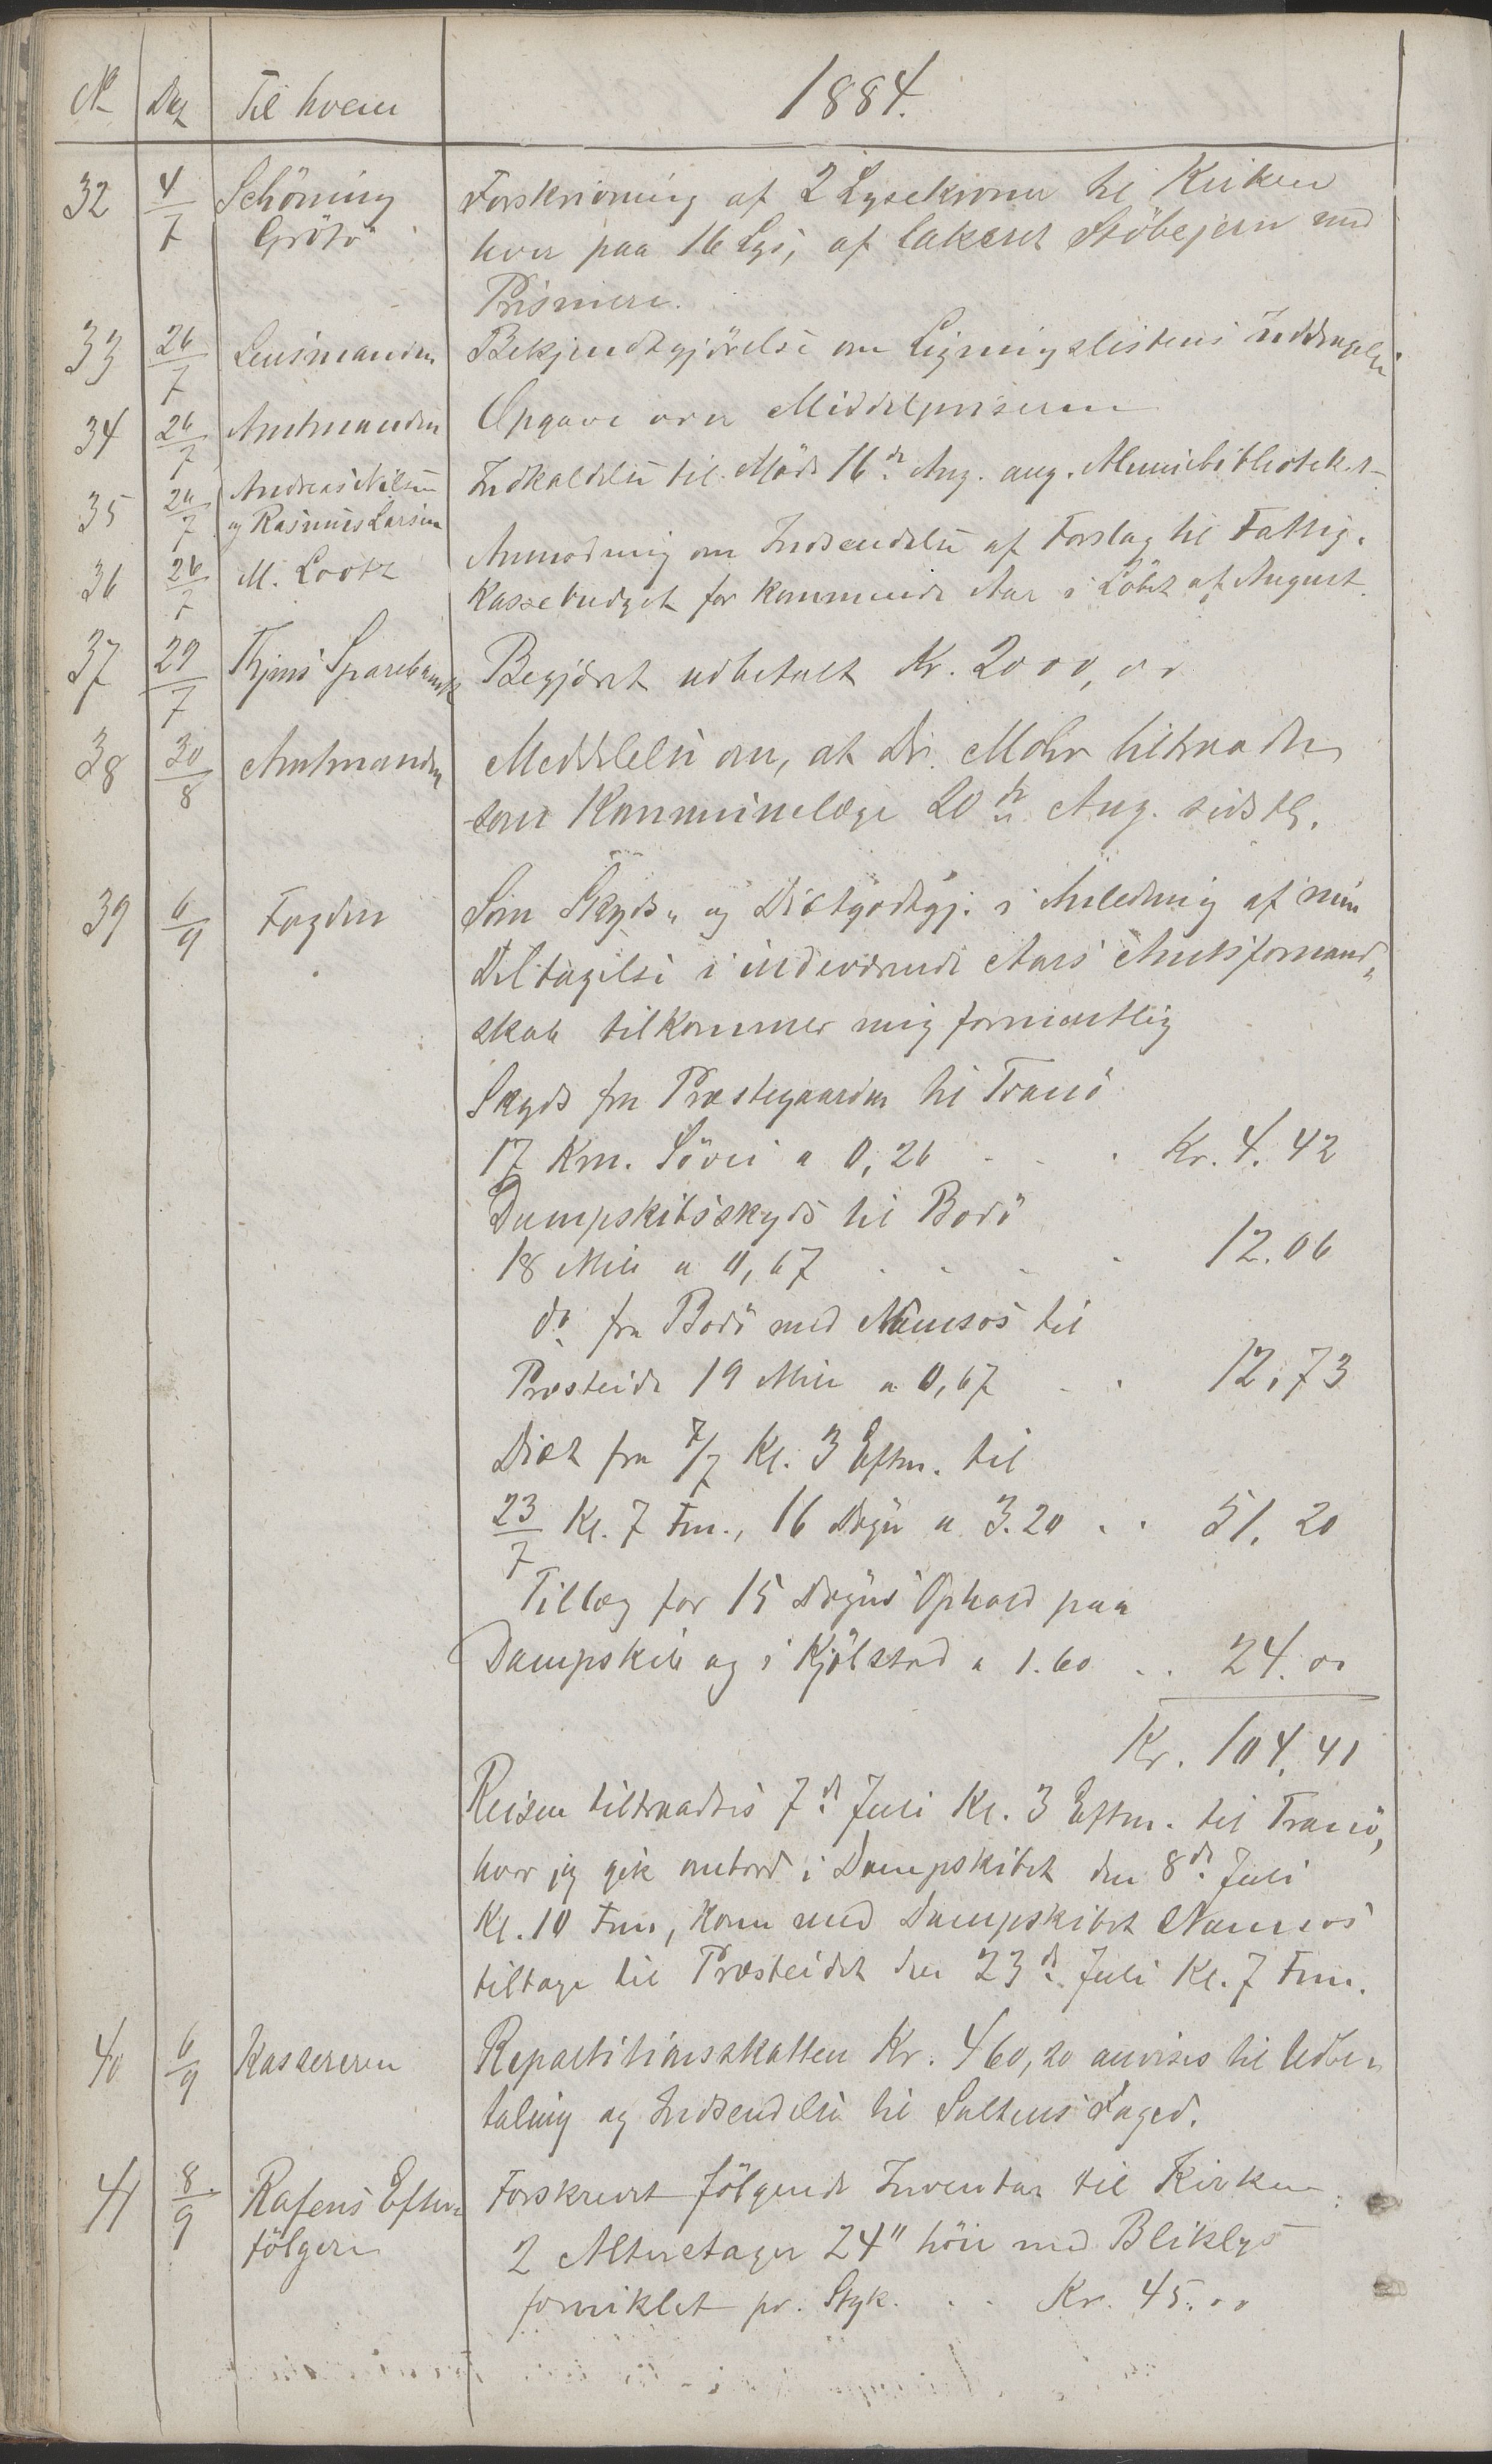 N Dag Til hvem 1884.
32 4/7 Schöning Forskrivning af 2 Lysekroner til Kirken
Grötö hver paa 16 Lys, af lakeret Stöbejern med
Prismer.
33 26/7 Lensmanden Bekjendtgjörelse om Ligningslistens Uddeagelse
34 26/7 Amtmanden Opgave over Middelpriserne
35 26/7 Andreas Nilsen Indkaldelse til Möde 16de Aug. ang. Almuebiblioteket
og Rasmus Larsen
36 26/7 M. Lootz Anmodning om Indsendelse af Forslag til Fattig-
kassebudget for kommende Aar i Löbet af August.
37 29/7 Thjems Sparebank Begjæret udbetalt Kr. 2000,00
38 30/8 Amtmanden Meddelelse om, at Dr. Mohr tiltraadte
som Kommunelæge 20de Aug. sidstl.
39 6/9 Fogden Som Skyds- og Diætgodtgj. i Anledning af min
Deltagelse i indeværende Aars Amtsformand-
skab tilkommer mig formentlig
Skyds fra Præstegaarden til Tranö
17 Km. Sövei a 0,26 - - . Kr. 4.42
Dampskibsskyds til Bodö
18 Mile a 0,67 . - - . 12.06
do fra Bodö med Namsos til
Præsteide 19 Mile a 0,67 - . 12,73
Diæt fra 7/7 Kl. 3 Eftm. til
23/7 Kl. 7 Fm., 16 Dögn a 3.20 . . 51.20
Tillæg for 15 Dögns Ophold paa
Dampskib og i Kjöbstad a 1.60 . . 24.00
Kr. 104,41
Reisen tiltraadtes 7de Juli Kl. 3 Eftm. til Tranö,
hvor jeg gik ombord i Dampskibet den 8de Juli
Kl. 10 Fm., kom med Dampskibet Namsos
tilbage til Præsteidet den 23de Juli Kl. 7 Fm.
40 6/9 Kassereren Repartitionsskatten Kr. 460,20 anvises til Udbe-
taling og Indsendelse til Saltens Foged.
41 8/9 Rafens Efter- Forskrevet fölgende Inventar til Kirken:
fölgere 2 Alterstager 24" höie med Bliklys
forniklet pr. Styk. . . Kr. 45.00